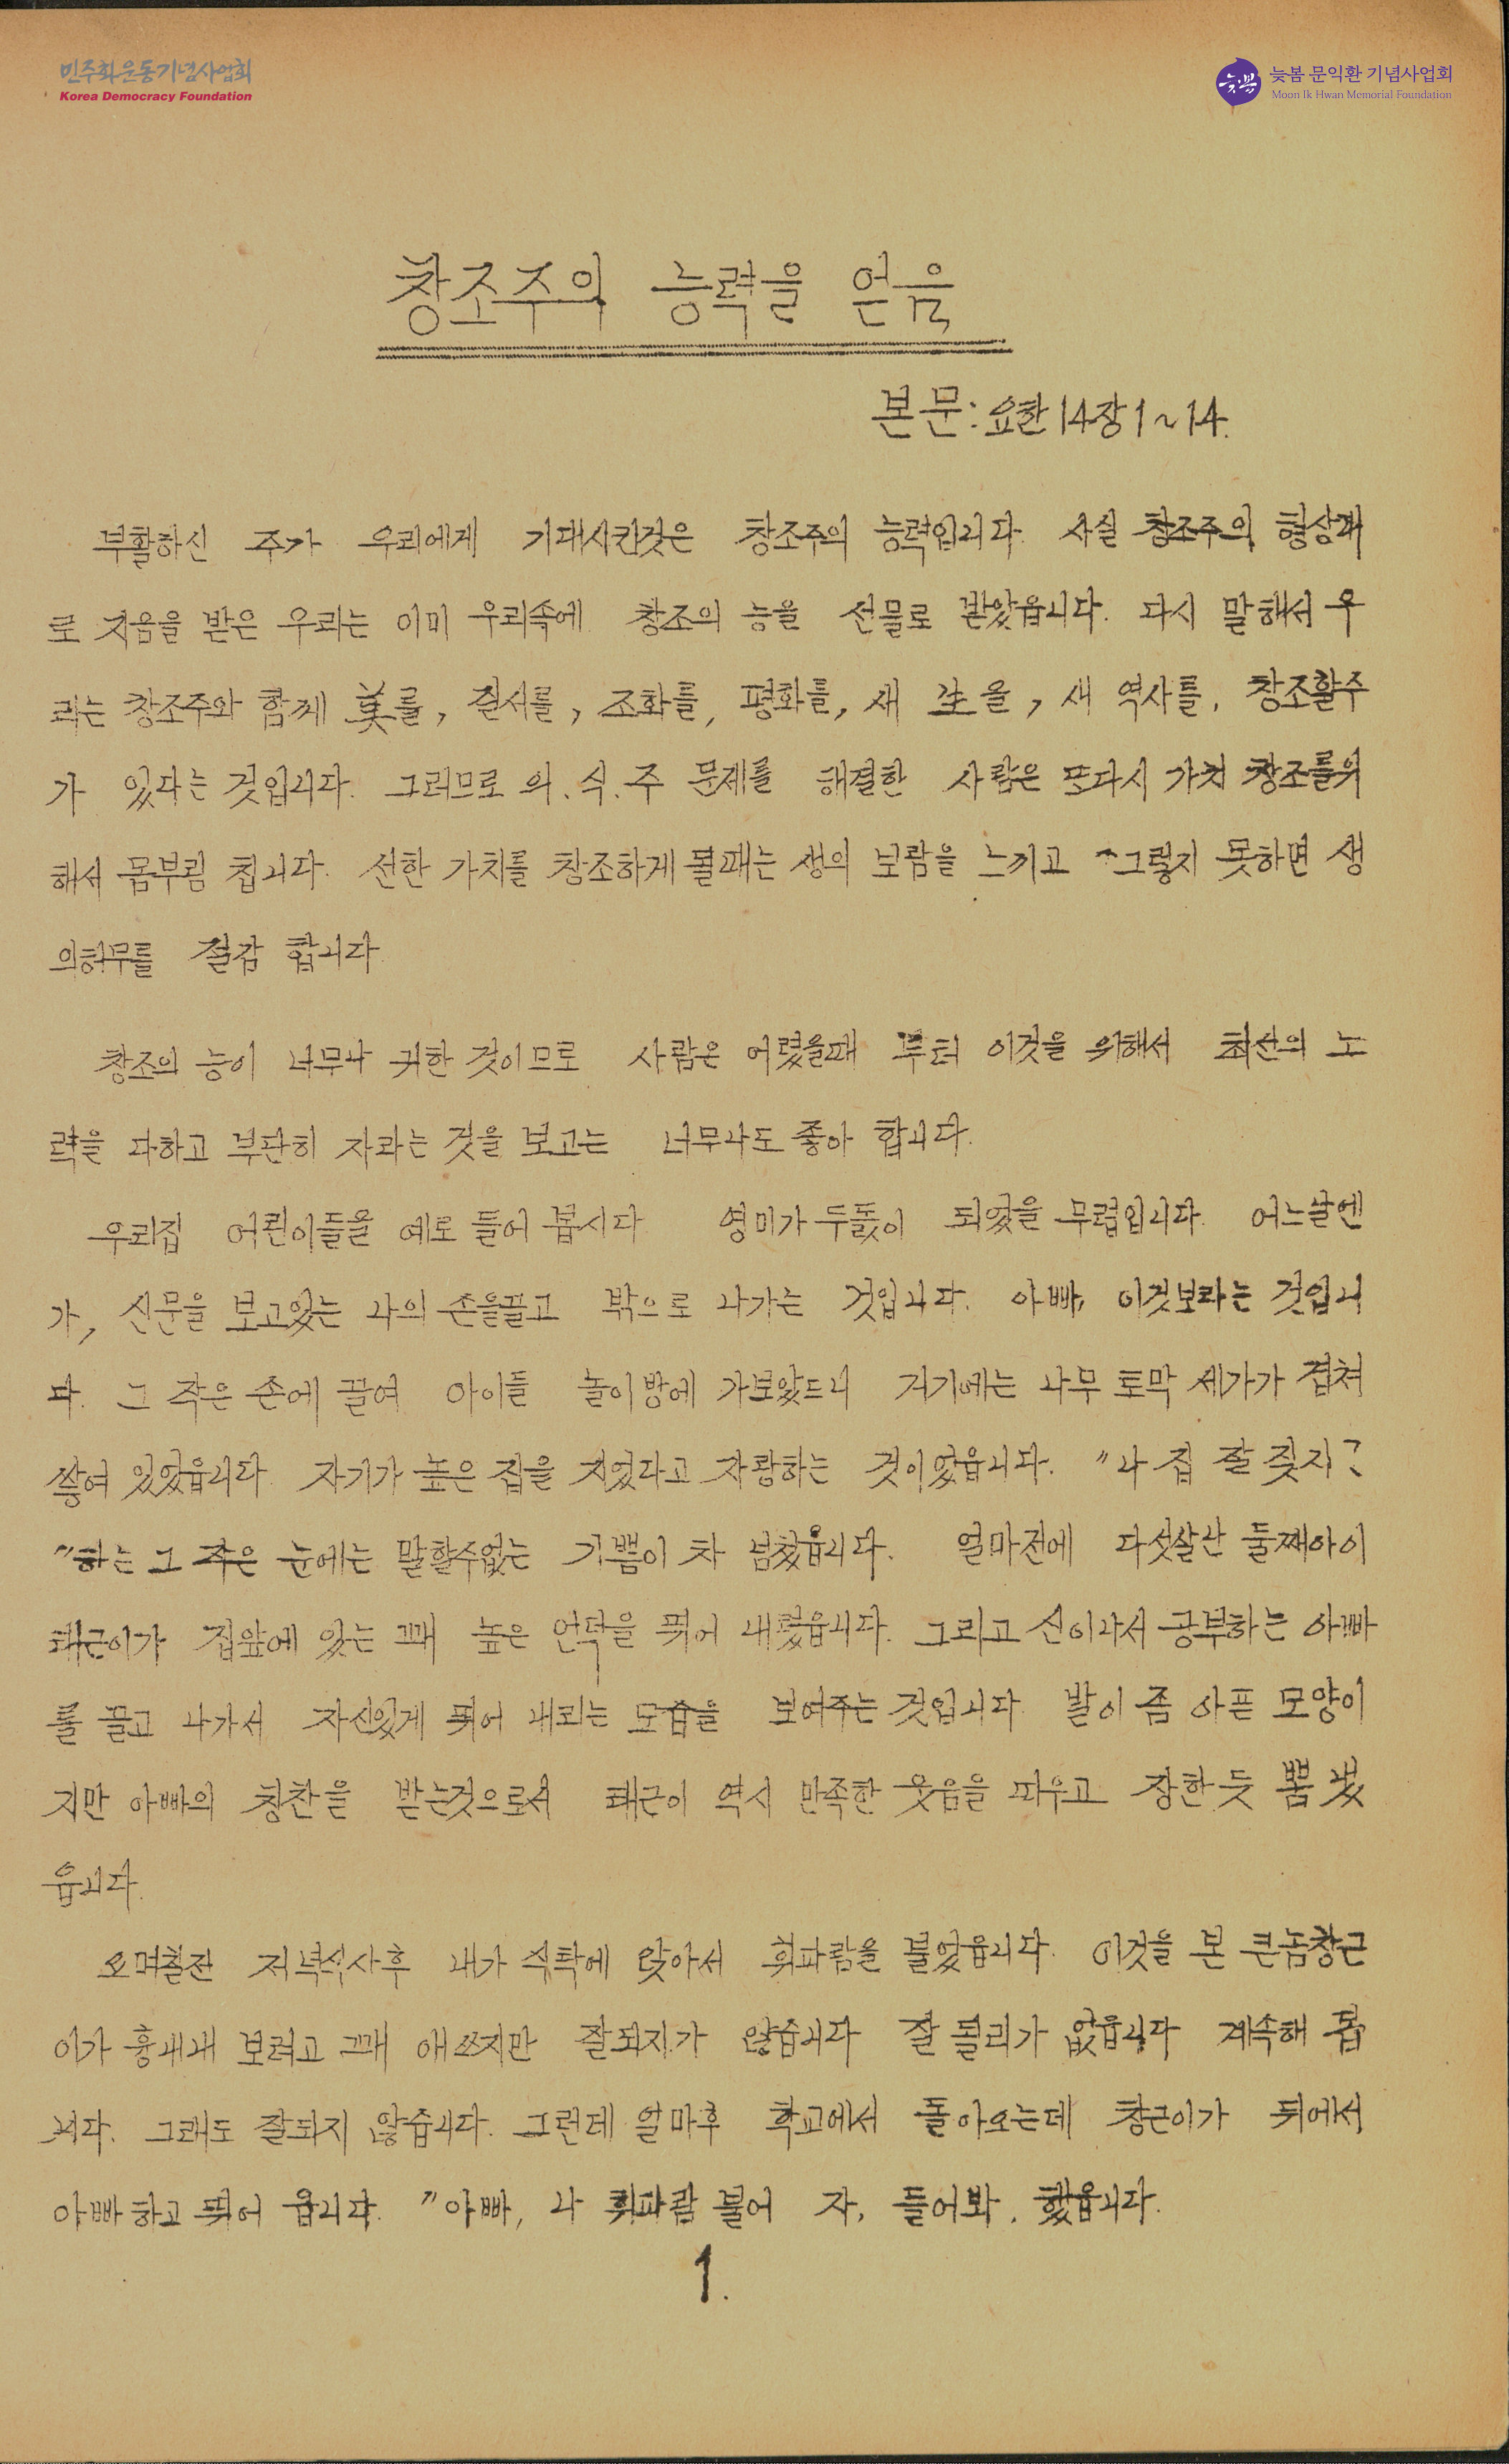 민주화운동기념사업회
Korea Democracy Foundation
늦봄
늦봄 문익환 기념사업회
Moon Ik Hwan Memorial Foundation
창조주의 능력을 얻음
본문: 요한 14장 1~14.
부활하신 주가 우리에게 기대시킨것은 창조주의 능력입니다. 사실 창조주의 형상대
로 지음을 받은 우리는 이미 우리속에 창조의 능을 선물로 받았읍니다. 다시 말해서 우
리는 창조주와 함께 美를, 질서를, 조화를, 평화를, 새 生을, 새 역사를, 창조할수
가 있다는 것입니다. 그러므로 의.식.주 문제를 해결한 사람은 또다시 가치 창조를위
해서 몸부림 칩니다. 선한 가치를 창조하게 될때는 생의 보람을 느끼고 그렇지 못하면 생
의허무를 절감 합니다
창조의 능이 너무나 귀한 것이므로 사람은 어렸을때 부터 이것을 위해서 최선의 노
력을 다하고 부단히 자라는 것을 보고는 너무나도 좋아 합니다.
우리집 어린이들을 예로 들어 봅시다 영미가 두돐이 되었을 무렵입니다. 어느날엔
가, 신문을 보고있는 나의 손을끌고 밖으로 나가는 것입니다. 아빠, 이것보라는 것입니
다. 그 작은 손에 끌여 아이들 놀이방에 가보았드니 거기에는 나무 토막 세가가 겹쳐
쌓여 있었읍니다. 자기가 높은 집을 지었다고 자랑하는 것이었읍니다. "나 집 잘 짖지?
"하는 그 작은 눈에는 말할수없는 기쁨이 차 넘쳤읍니다. 얼마전에 다섯살난 둘째아이
태근이가 집앞에 있는 꽤 높은 언덕을 뛰어 내렸읍니다. 그리고 신이나서 공부하는 아빠
를 끌고 나가서 자신있게 뛰어 내리는 모습을 보여주는 것입니다. 발이 좀 아픈 모양이
지만 아빠의 칭찬을 받는것으로서 태근이 역시 만족한 웃음을 띠우고 장한듯 뽐냈
읍니다.
오며칠전 저녁식사후 내가 식탁에 앉아서 휘파람을 불었읍니다. 이것을 본 큰놈창근
이가 흉내내 보려고 꽤 애쓰지만 잘되지가 않습니다 잘 될리가 없읍니다 계속해 봅
니다. 그래도 잘되지 않습니다. 그런데 얼마후 학교에서 돌아오는데 창근이가 뒤에서
아빠 하고 뛰어 옵니다. "아빠, 나 휘파람 불어 자, 들어봐. 했읍니다.
1.